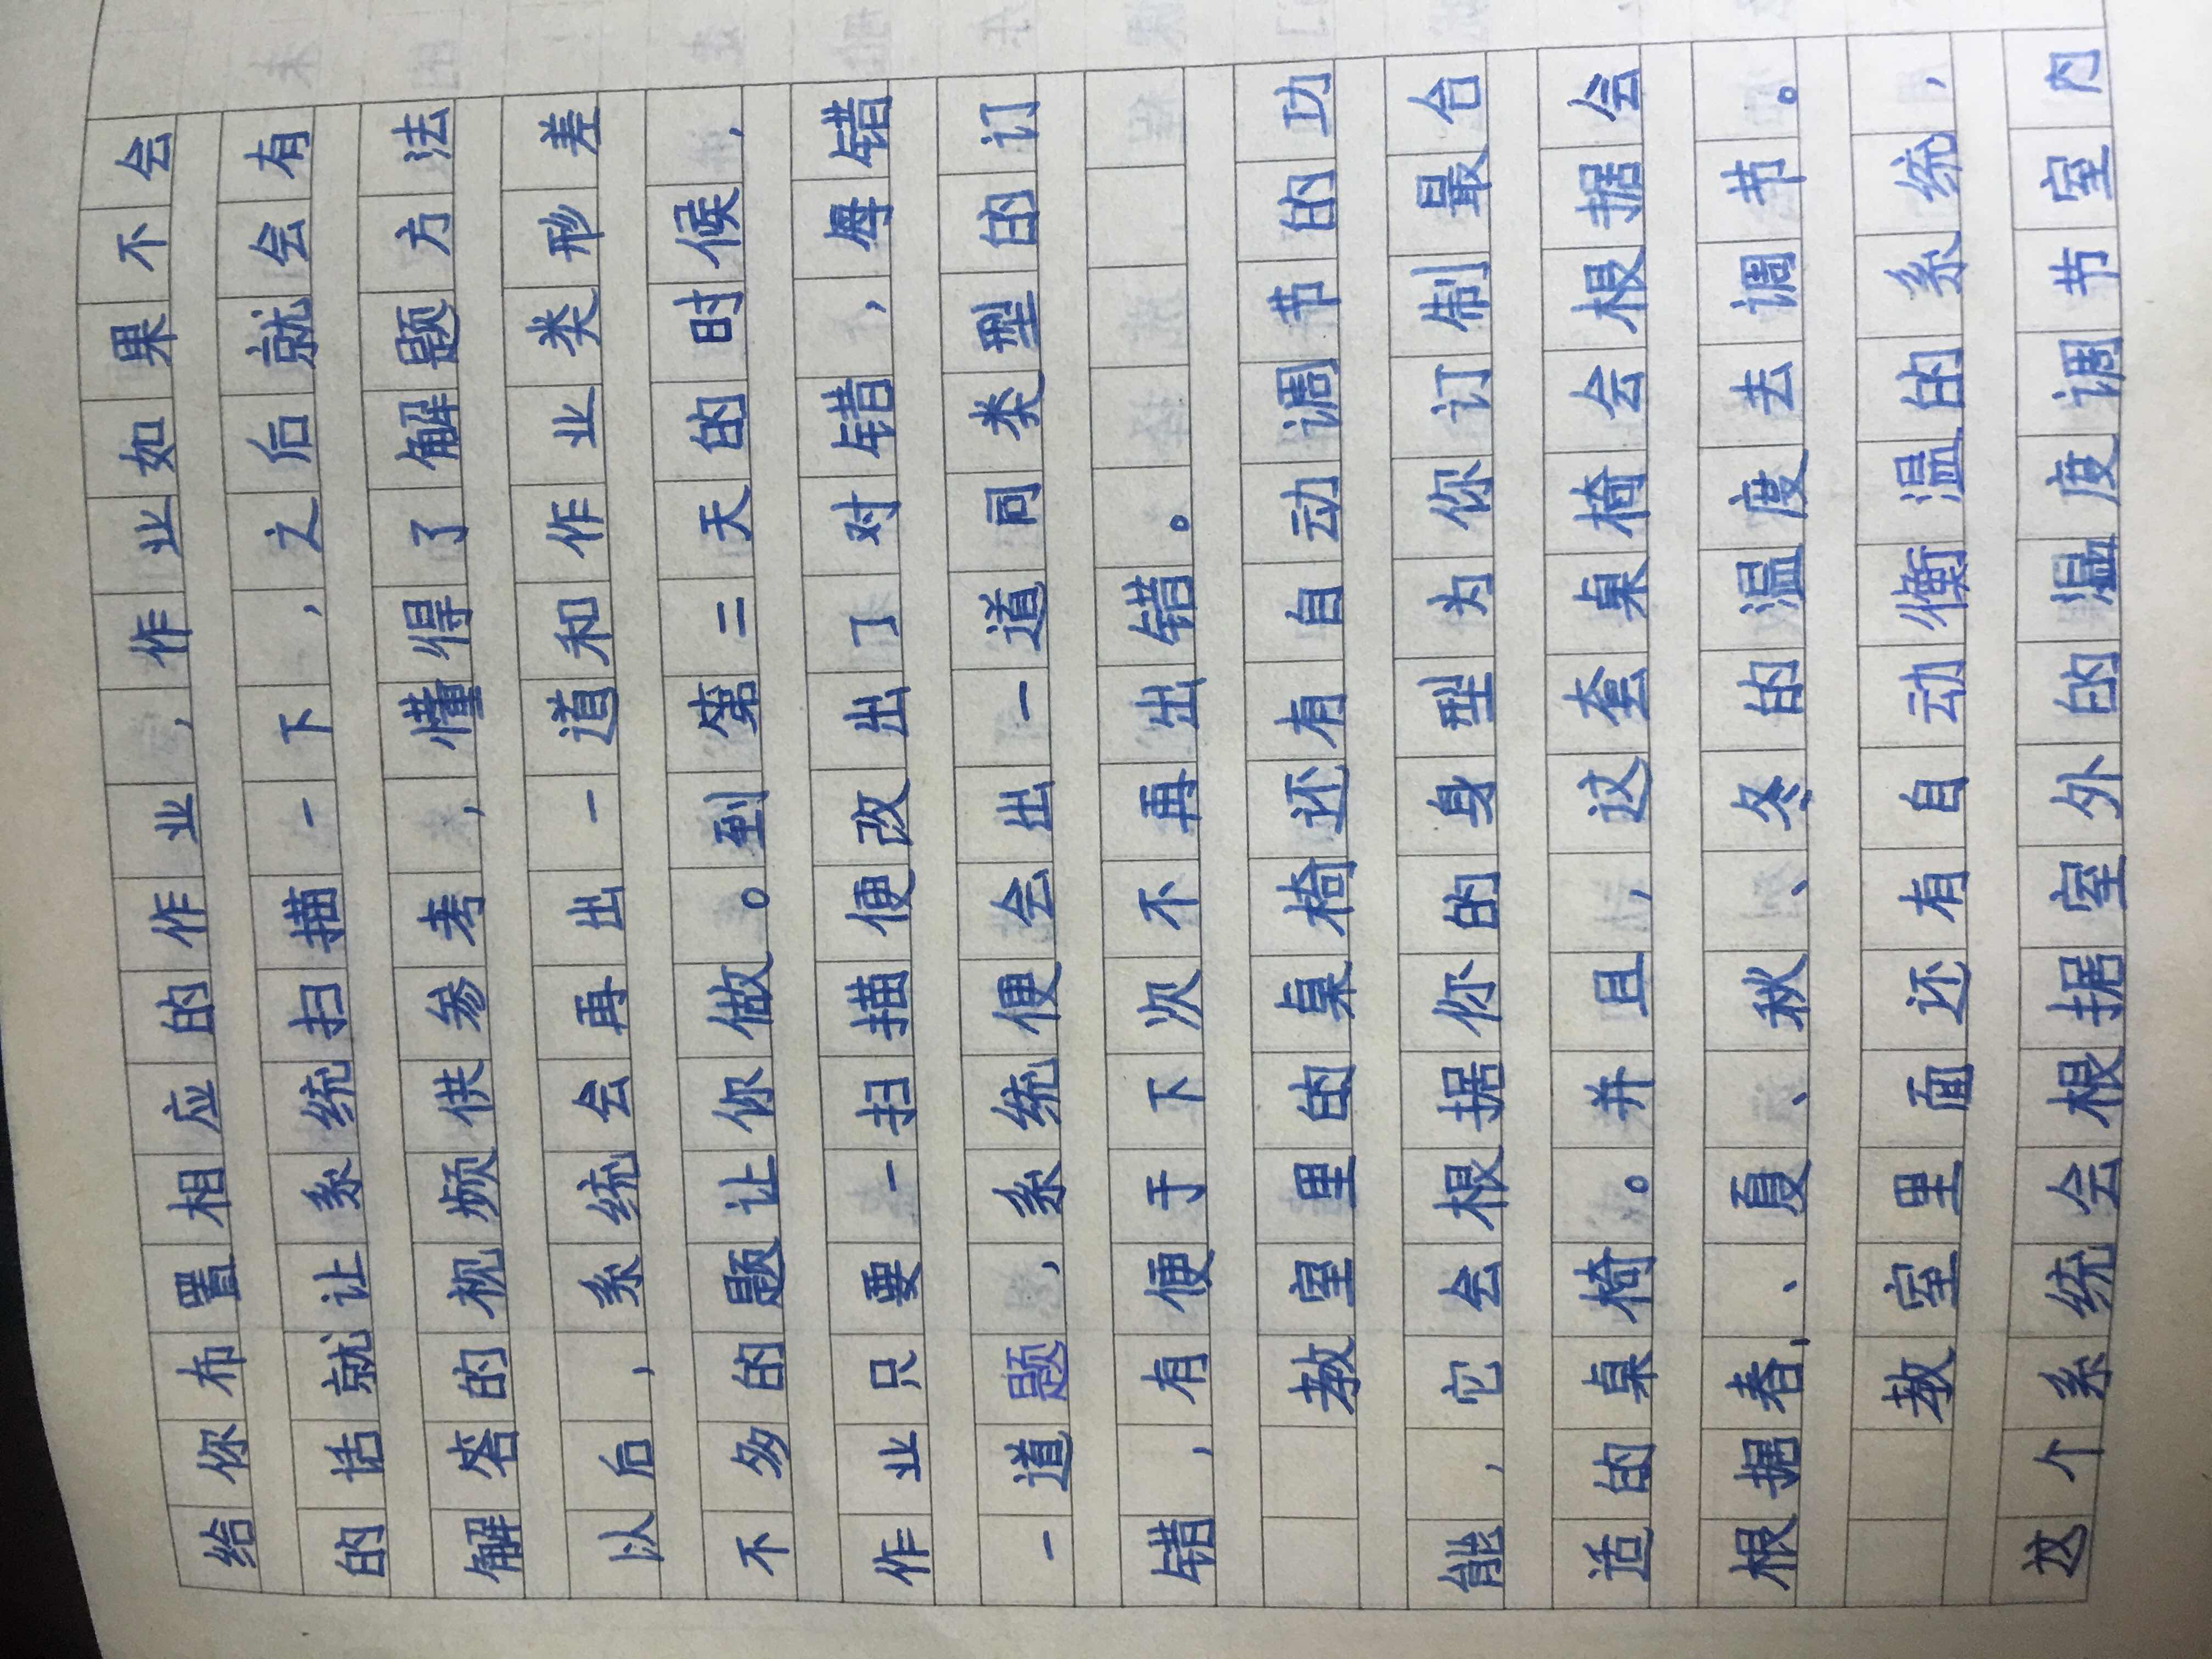 给你布置相应的作业，作业如果不会
的话就让系统扫描一下，之后就会有
解答的视频供参考，懂得了解题方法
以后，系统会再出一道和作业类形差
不多的题让你做。到第二天的时候，
作业只要一扫描便改出了对错，每错
一道题，系统便会出一道同类型的订
错，有便于下次不再出错。
教室里的桌椅还有自动调节的功
能，它会根据你的身型为你订制最合
适的桌椅。并且，这套桌椅会根据会
根据春、夏、秋、冬的温度去调节。
教室里面还有自动衡温的系统，
这个系统会根据室外的温度调节室内